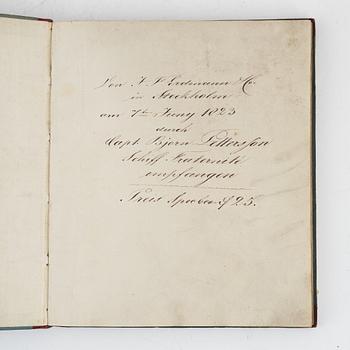 Von J F Erdmann & Co.
in Stockholm
am 7ten Juny 1823
durch
Capt. Bjorn Pettersson
Schiff Fraternité
empfangen
Preis 25.